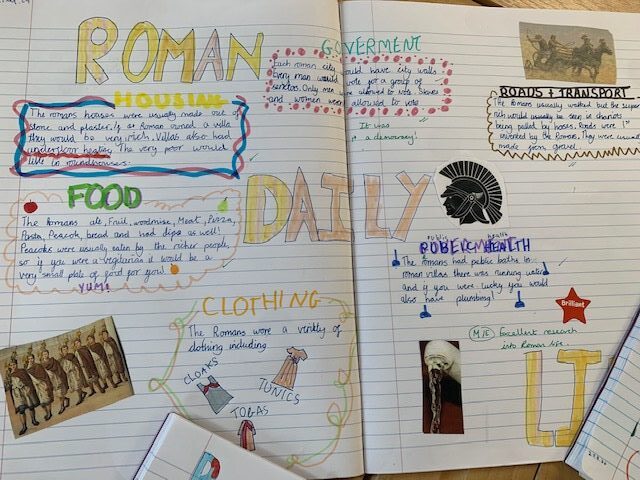 ROMAN
HOUSING
The romans houses were usually made out of
stone and plaster. If a Roman owned a villa
they would be very rich. Villas also had
underfloor heating. The very poor would
live in roundhouses.
GOVERMENT
Each roman city would have city walls.
Every man would vote for a group of
Only men were allowed to vote. Slaves
and women weren't allowed to vote
It was
a democracy!
FOOD
The Romans ate, Fruit, Meat, Pizza,
Pasta, Peacock, bread and had dips as well!
Peacocks were usually eaten by the richer people,
so if you were a vegetarian it would be a
very small plate of food for you!
YUM!
DAILY
CLOTHING
The Romans wore a of
clothing including
CLOAKS
TUNICS
TOGAS
ROADS + TRANSPORT
The Romans usually walked but the super
rich would usually be seen on chariots
being pulled by horses. Roads were
invented by the Roman. They were usually
made from gravel.
public health
HEALTH
The romans had public baths in
roman villas there was running water
and if you were lucky you would
also have plumbing!
Brilliant
Excellent research
into Roman life.
LI